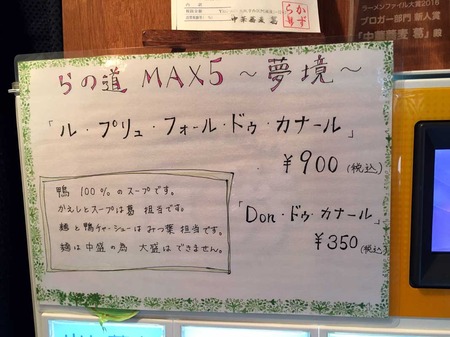 中華蕎麦 葛
ラーメンファイル大賞2016
ブロガー部門 新人賞
「中華蕎麦 葛」殿
らの道 MAX5 〜夢境〜
「ル・プリュ・フォール・ドゥ・カナール」
¥900(税込)
鴨 100%のスープです。
かえしとスープは葛 担当です。
麺と鴨チャーシューはみつ葉 担当です。
麺は中盛の為 大盛はできません。
「Don・ドゥ・カナール」
¥350(税込)